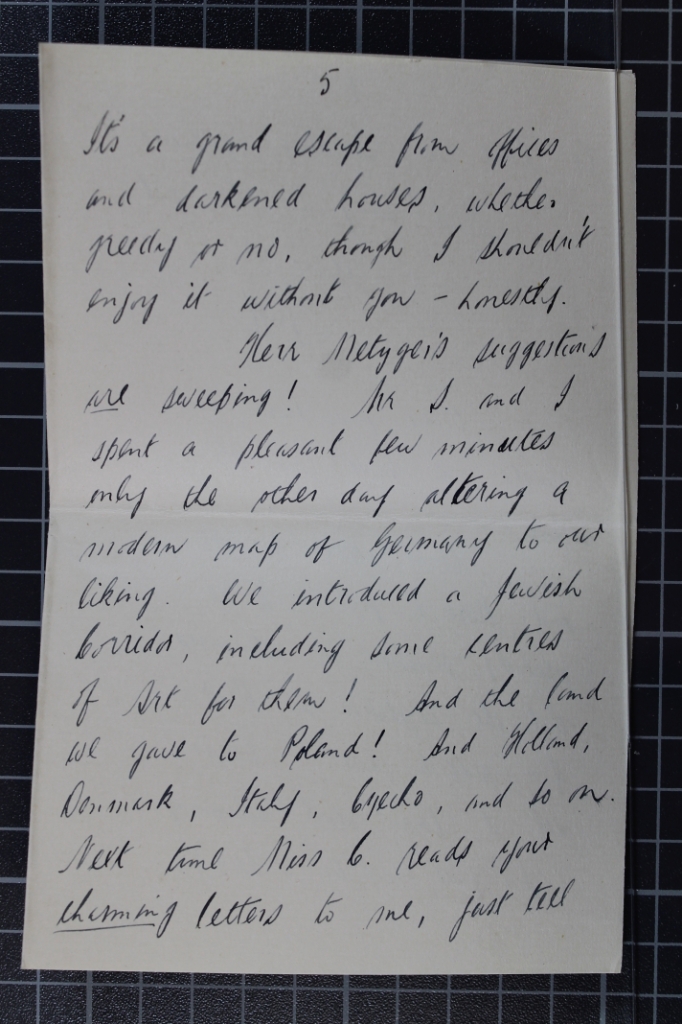 5
It's a grand escape from offices
and darkened houses, whether
greedy or no, though I shouldn't
enjoy it without you – honestly.
Herr Metzger's suggestions
are sweeping! Mr S. and I
spent a pleasant few minutes
only the other day altering a
modern map of Germany to our
liking. We introduced a Jewish
Corridor, including some centres
of Art for them! And the land
we gave to Poland! And Holland,
Denmark, Italy, Czecho, and so on.
Next time Miss C. reads your
charming letters to me, just tell